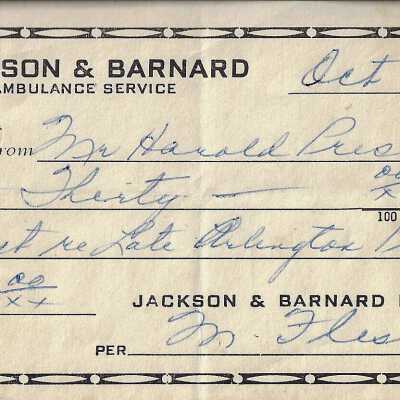 SON & BARNARD Oct
AMBULANCE SERVICE
From Mr Harold Pres
Thirty — oo
xx
100
re Late Arlington
oo
xx
JACKSON & BARNARD
PER M. Fles